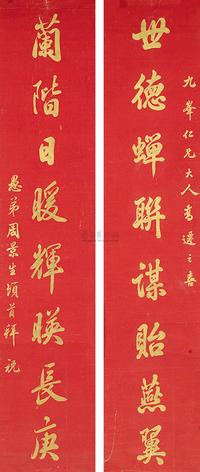 九峯仁兄大人喬遷之喜
世德蟬聯謀貽燕翼
蘭階日暖輝暎長庚
愚弟周景生頓首拜祝